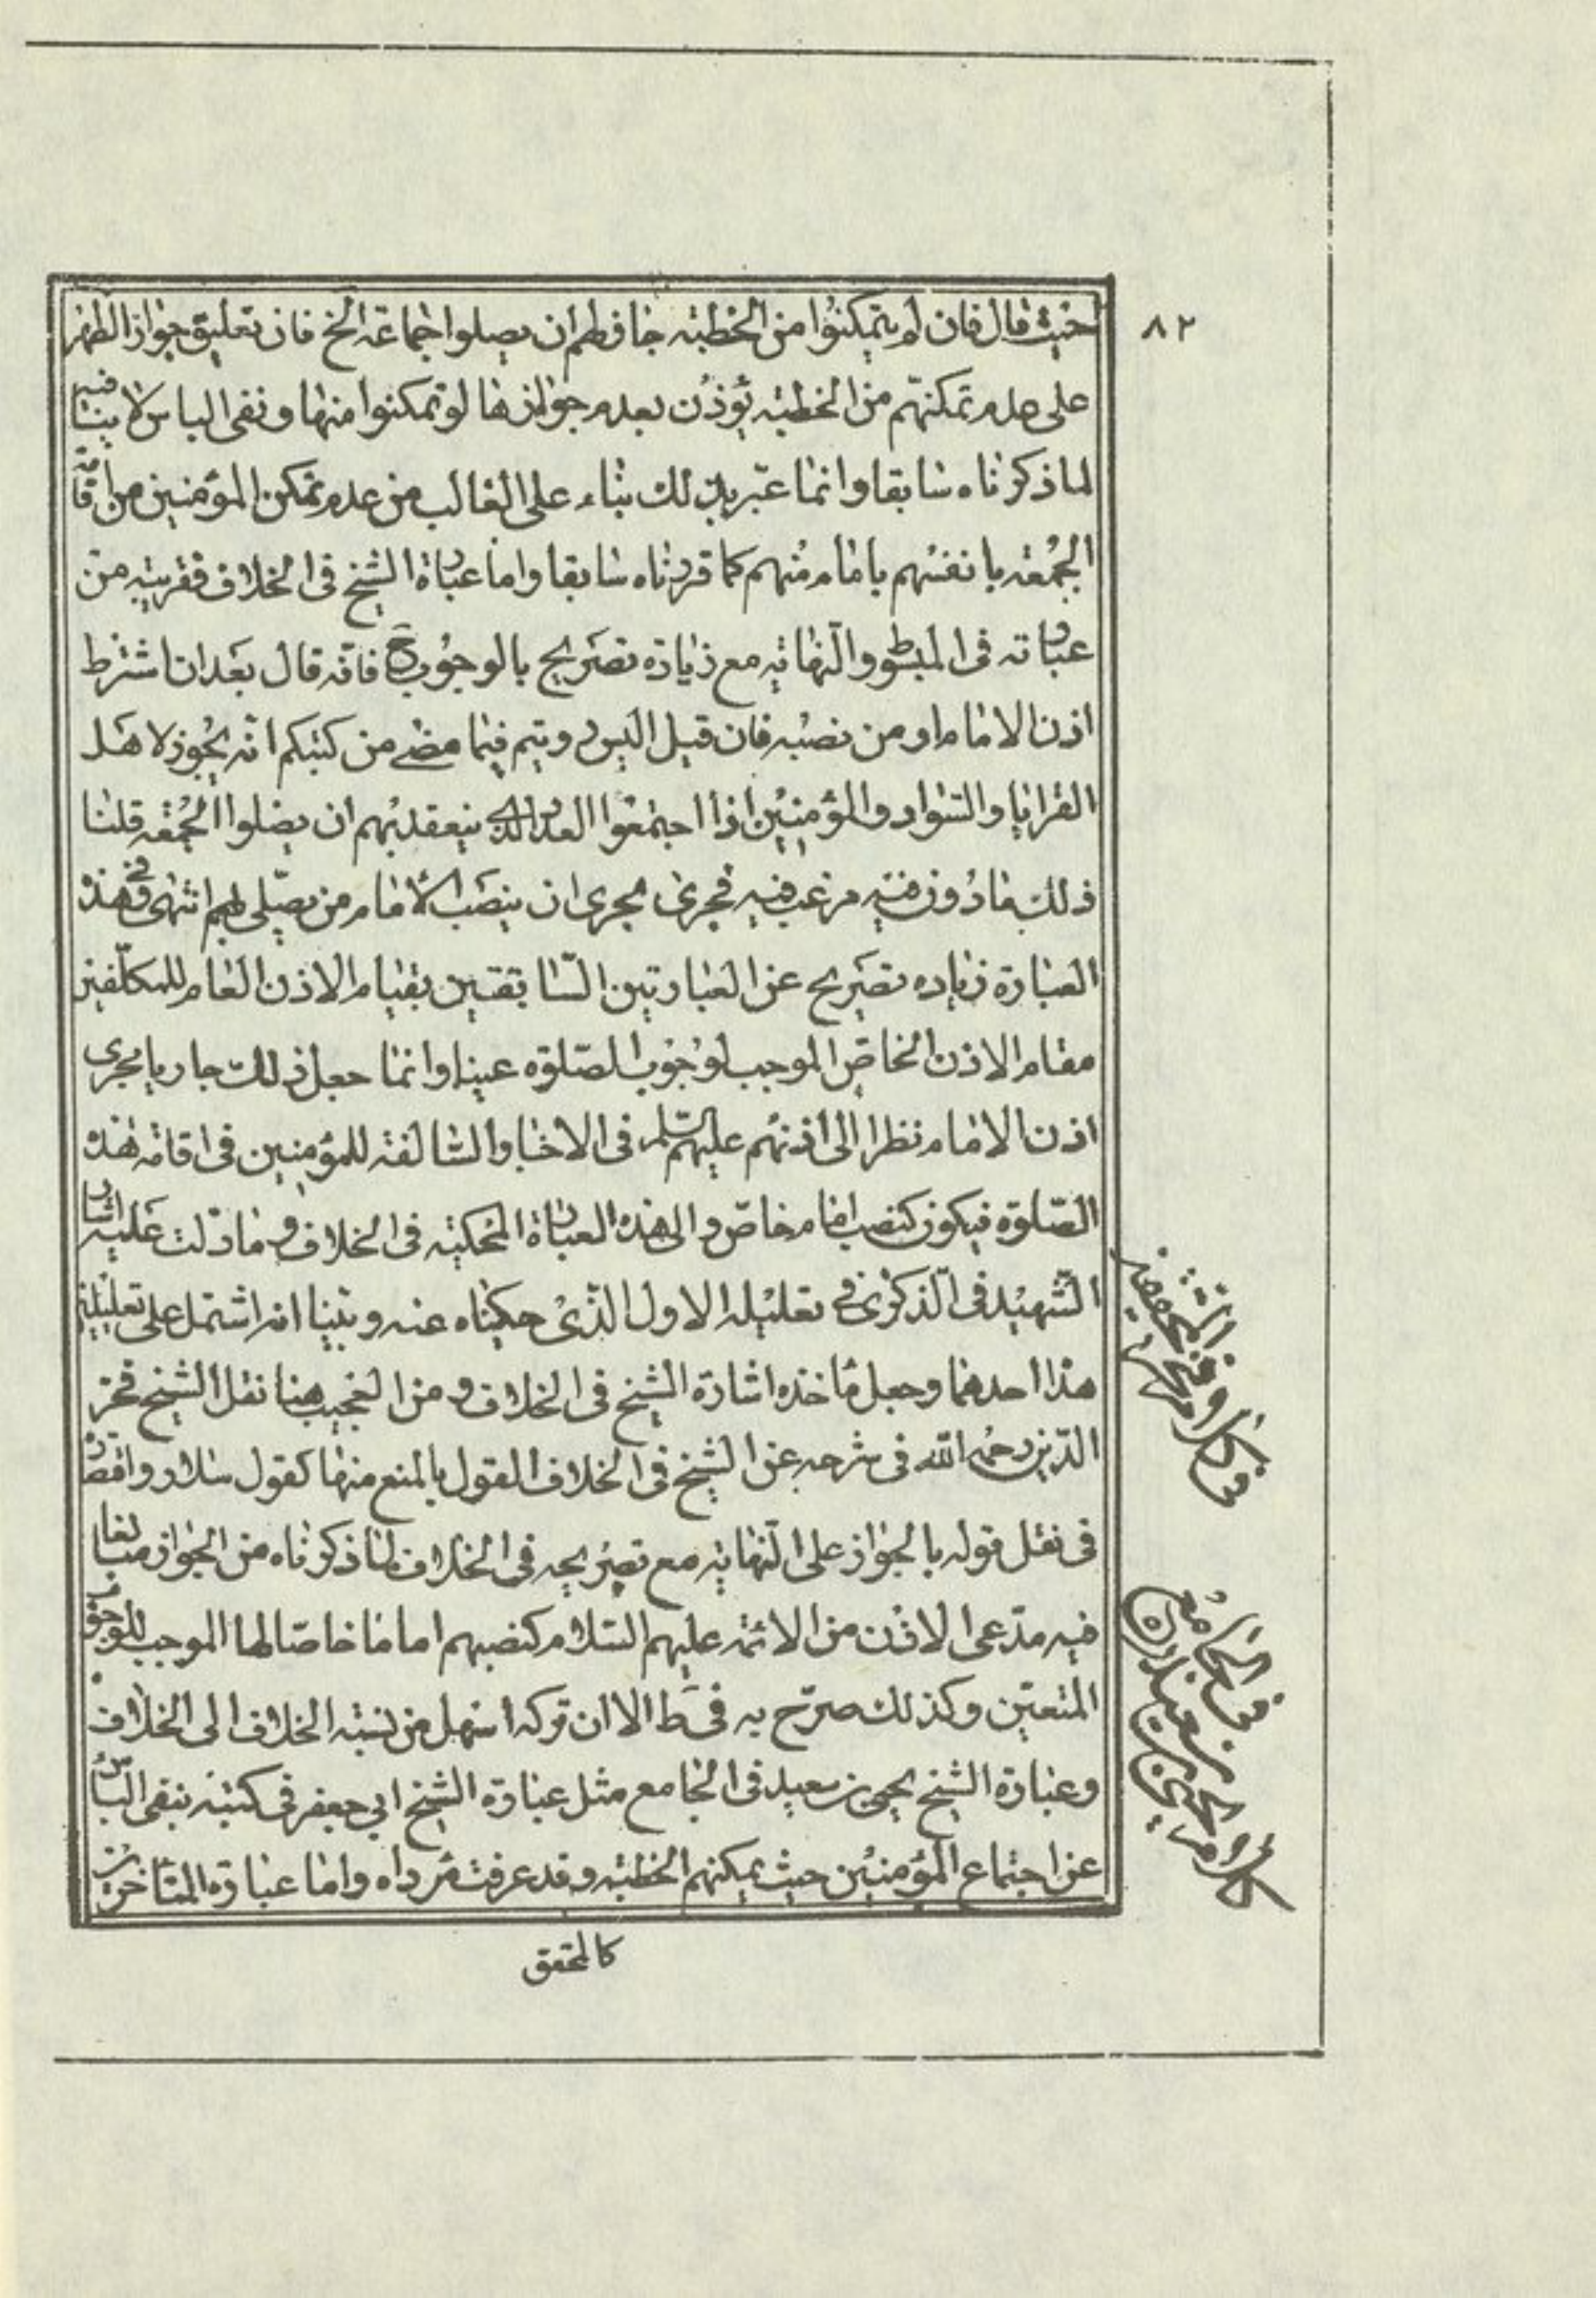 ٨٢
حيث قال فان لم يتمكنوا من الخطبه جاز لهم ان يصلوا جماعة الخ فان تعليق جواز الظهر
على عدم تمكنهم من الخطبه يؤذن بعدم جوازها لو تمكنوا منها ونفى الباس لا ينافيه
لما ذكرناه سابقا وانما عبر بذلك بناء على الغالب من عدم تمكن المؤمنين من اقامة
الجمعه بانفسهم بامام منهم كما قررناه سابقا واما عبارة الشيخ فى الخلاف فقريبه من
عباراته فى المبسوط والنهايه مع زيادة تصريح بالوجوب ح فانه قال بعد ان اشترط
اذن الامام او من نصبه فان قيل اليس رويتم فيما مضى من كتبكم انه يجوز لاهل
القرايا والسواد والمؤمنين اذا اجتمعوا العدد الذى ينعقد بهم ان يصلوا الجمعه قلنا
ذلك ماذون فيه مرغب فيه فجرى مجرى ان ينصب الامام من يصلى بهم انتهى وفى هذه
العبارة زياده تصريح عن العبارتين السابقتين بقيام الاذن العام للمكلفين
مقام الاذن الخاص الموجب لوجوب الصلوة عينا وانما جعل ذلك جاريا مجرى
اذن الامام نظرا الى اذنهم عليهم السلم فى الاخبار السالفه للمؤمنين فى اقامه هذه
الصلوة فيكون كنصب امام خاص والى هذه العبارة المحكيه فى الخلاف وما دلت عليه اشار
الشهيد فى الذكرى فى تعليله الاول الذى حكيناه عنه وبينا انه اشتمل على تعليلين
هذا احدهما وجعل ماخذه اشارة الشيخ فى الخلاف ومن العجيب هنا نقل الشيخ فخر
الدين رحمه الله فى شرحه عن الشيخ فى الخلاف القول بالمنع منها كقول سلار واقتصاره
فى نقل قوله بالجواز على النهايه مع تصريحه فى الخلاف بما ذكرناه من الجواز مبالغا
فيه مدعى الاذن من الائمه عليهم السلام كنصبهم اماما خاصا لها الموجب للوجوب
المتعين وكذلك صرح به فى ط الا ان تركه اسهل من نسبة الخلاف الى الخلاف
وعبارة الشيخ يحيى بن سعيد فى الجامع مثل عبارة الشيخ ابي جعفر فى كتبه بنفى الباس
عن اجتماع المؤمنين حيث يمكنهم الخطبه وقد عرفت مرداه واما عبارة المتأخرين
كالمحقق